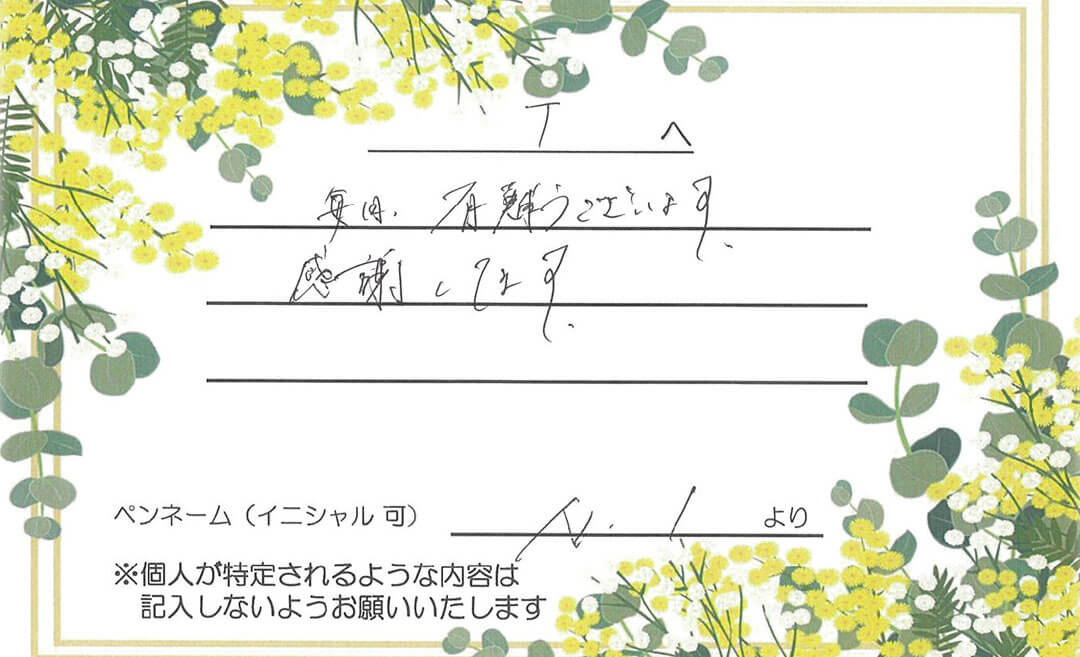 T へ
毎日、有難うございます。
感謝してます。
ペンネーム（イニシャル 可） N. I より
※個人が特定されるような内容は
記入しないようお願いいたします